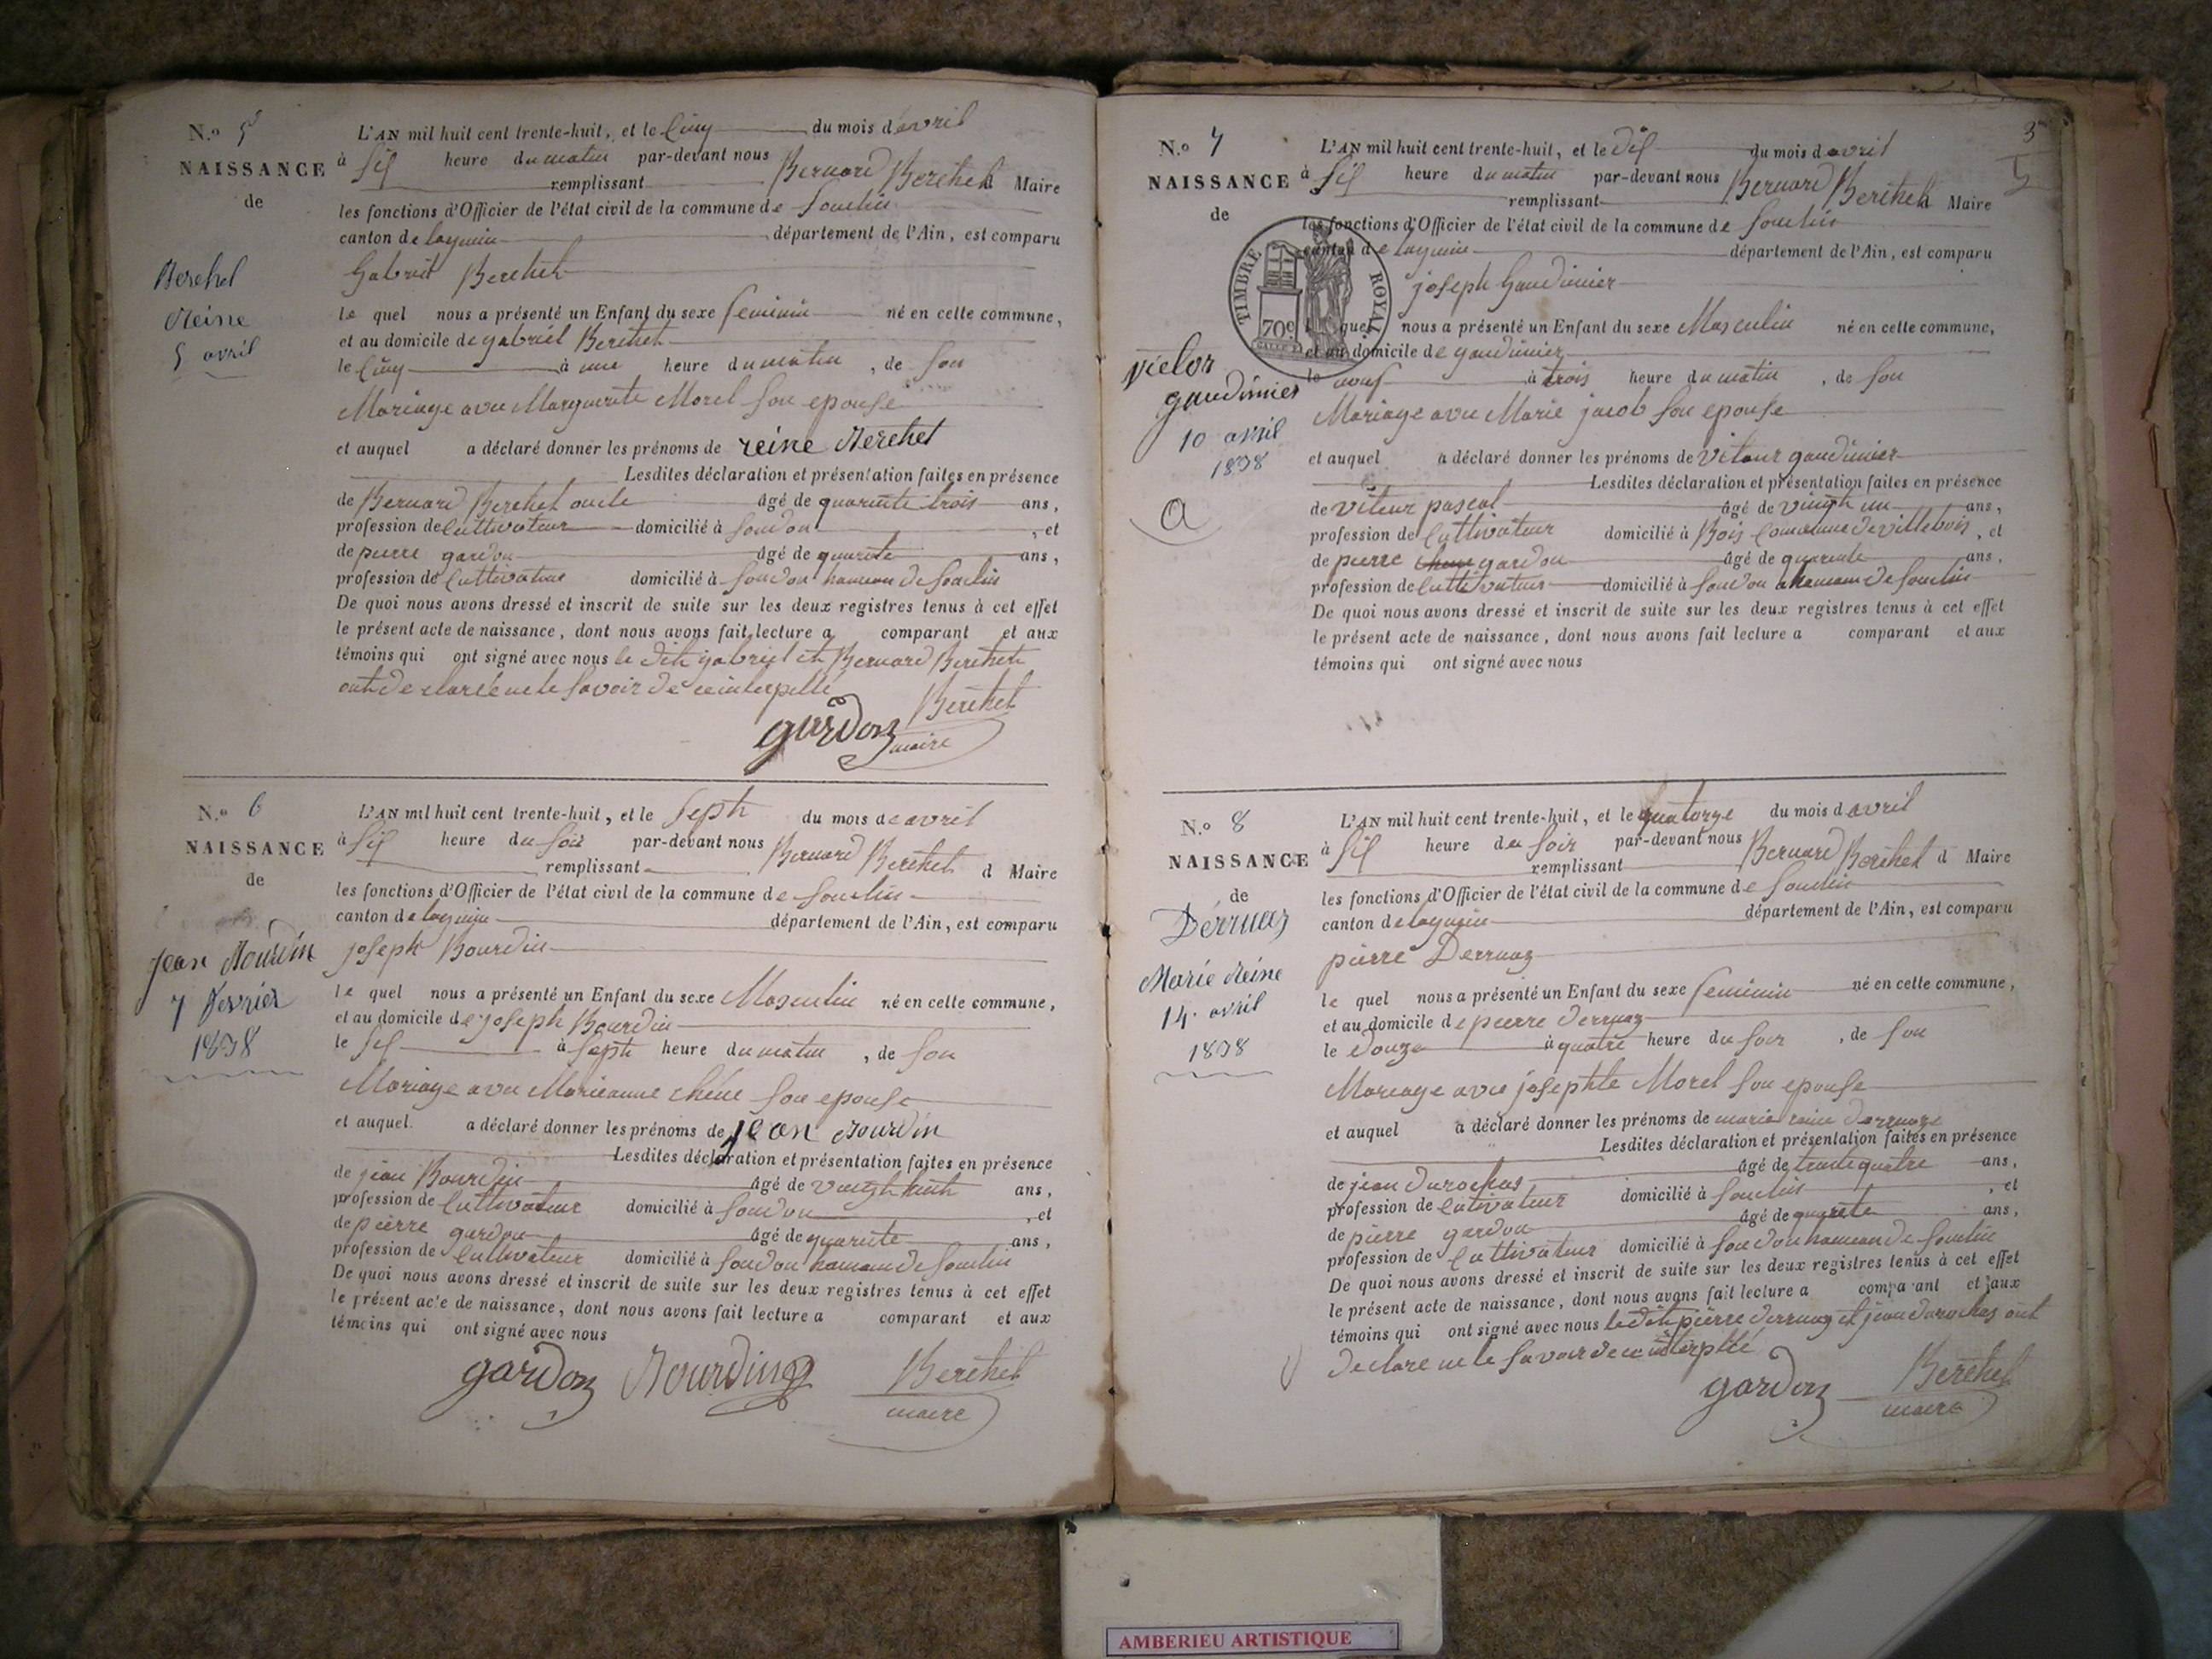 N.o 5
NAISSANCE
de
Berehel
Reine
5 avril
L'AN mil huit cent trente-huit, et le Cinq du mois d avril
à Sis heure du matin par-devant nous Bernard Berthet
remplissant d Maire
les fonctions d'Officier de l'état civil de la commune de Souclin
canton de lagnieu département de l'Ain, est comparu
Gabriel Berthet
le quel nous a présenté un Enfant du sexe feminin né en cette commune,
et au domicile de gabriel Berthet
le Cinq à une heure du matin, de son
Mariage avec Marguerite Morel son epouse
et auquel a déclaré donner les prénoms de reine Berehet
Lesdites déclaration et présentation faites en présence
de Bernard Berthet oncle âgé de quarente trois ans,
profession de Cultivateur domicilié à Soudon, et
de pierre gardon âgé de quarente ans,
profession de Cultivateur domicilié à Soudon hameau de Souclin
De quoi nous avons dressé et inscrit de suite sur les deux registres tenus à cet effet
le présent acte de naissance, dont nous avons fait lecture a comparant et aux
témoins qui ont signé avec nous le dit gabriel et Bernard Berthet
ont declaré ne le savoir de ce interpellé
gardon Berthet
maire
N.o 6
NAISSANCE
de
Jean Bourdin
7 fevrier
1838
L'AN mil huit cent trente-huit, et le Sept du mois de avril
à Sis heure du soir par-devant nous Bernard Berthet
remplissant d Maire
les fonctions d'Officier de l'état civil de la commune de Souclin
canton de lagnieu département de l'Ain, est comparu
joseph Bourdin
le quel nous a présenté un Enfant du sexe Masculin né en cette commune,
et au domicile de joseph Bourdin
le sis à Sept heure du matin, de son
Mariage avec Marieanne chêne son epouse
et auquel a déclaré donner les prénoms de jean Bourdin
Lesdites déclaration et présentation faites en présence
de jean Bourdin âgé de vingt huit ans,
profession de Cultivateur domicilié à Soudon, et
de pierre gardon âgé de quarente ans,
profession de Cultivateur domicilié à Soudon hameau de Souclin
De quoi nous avons dressé et inscrit de suite sur les deux registres tenus à cet effet
le présent acte de naissance, dont nous avons fait lecture a comparant et aux
témoins qui ont signé avec nous
gardon Bourding Berthet
maire
3
N.o 7
NAISSANCE
de
TIMBRE ROYAL
70c
victor
gaudinier
10 avril
1838
a
L'AN mil huit cent trente-huit, et le dis du mois d avril
à Sis heure du matin par-devant nous Bernard Berthet
remplissant d Maire
les fonctions d'Officier de l'état civil de la commune de Souclin
canton de lagnieu département de l'Ain, est comparu
joseph Gaudinier
le quel nous a présenté un Enfant du sexe Masculin né en cette commune,
et au domicile de gaudinier
le neuf à trois heure du matin, de son
Mariage avec Marie jacob son epouse
et auquel a déclaré donner les prénoms de viteur gaudinier
Lesdites déclaration et présentation faites en présence
de viteur pascal âgé de vingt un ans,
profession de Cultivateur domicilié à Bois Commune de villebois, et
de pierre gardon âgé de quarente ans,
profession de Cultivateur domicilié à Soudon hameau de Souclin
De quoi nous avons dressé et inscrit de suite sur les deux registres tenus à cet effet
le présent acte de naissance, dont nous avons fait lecture a comparant et aux
témoins qui ont signé avec nous
N.o 8
NAISSANCE
de
Dérruaz
Marie Reine
14 avril
1838
L'AN mil huit cent trente-huit, et le quatorze du mois d avril
à Sis heure du soir par-devant nous Bernard Berthet
remplissant d Maire
les fonctions d'Officier de l'état civil de la commune de Souclin
canton de lagnieu département de l'Ain, est comparu
pierre Derruaz
le quel nous a présenté un Enfant du sexe feminin né en cette commune,
et au domicile de pierre derruaz
le douze à quatre heure du soir, de son
Mariage avec josephte Morel son epouse
et auquel a déclaré donner les prénoms de marie reine derruaz
Lesdites déclaration et présentation faites en présence
de jean durochas âgé de trente quatre ans,
profession de Cultivateur domicilié à Souclin, et
de pierre gardon âgé de quarente ans,
profession de Cultivateur domicilié à Soudon hameau de Souclin
De quoi nous avons dressé et inscrit de suite sur les deux registres tenus à cet effet
le présent acte de naissance, dont nous avons fait lecture a comparant et aux
témoins qui ont signé avec nous le dit pierre derruaz et jean durochas ont
declare ne le savoir de ce interpllé
gardon Berthet
maire
AMBERIEU ARTISTIQUE